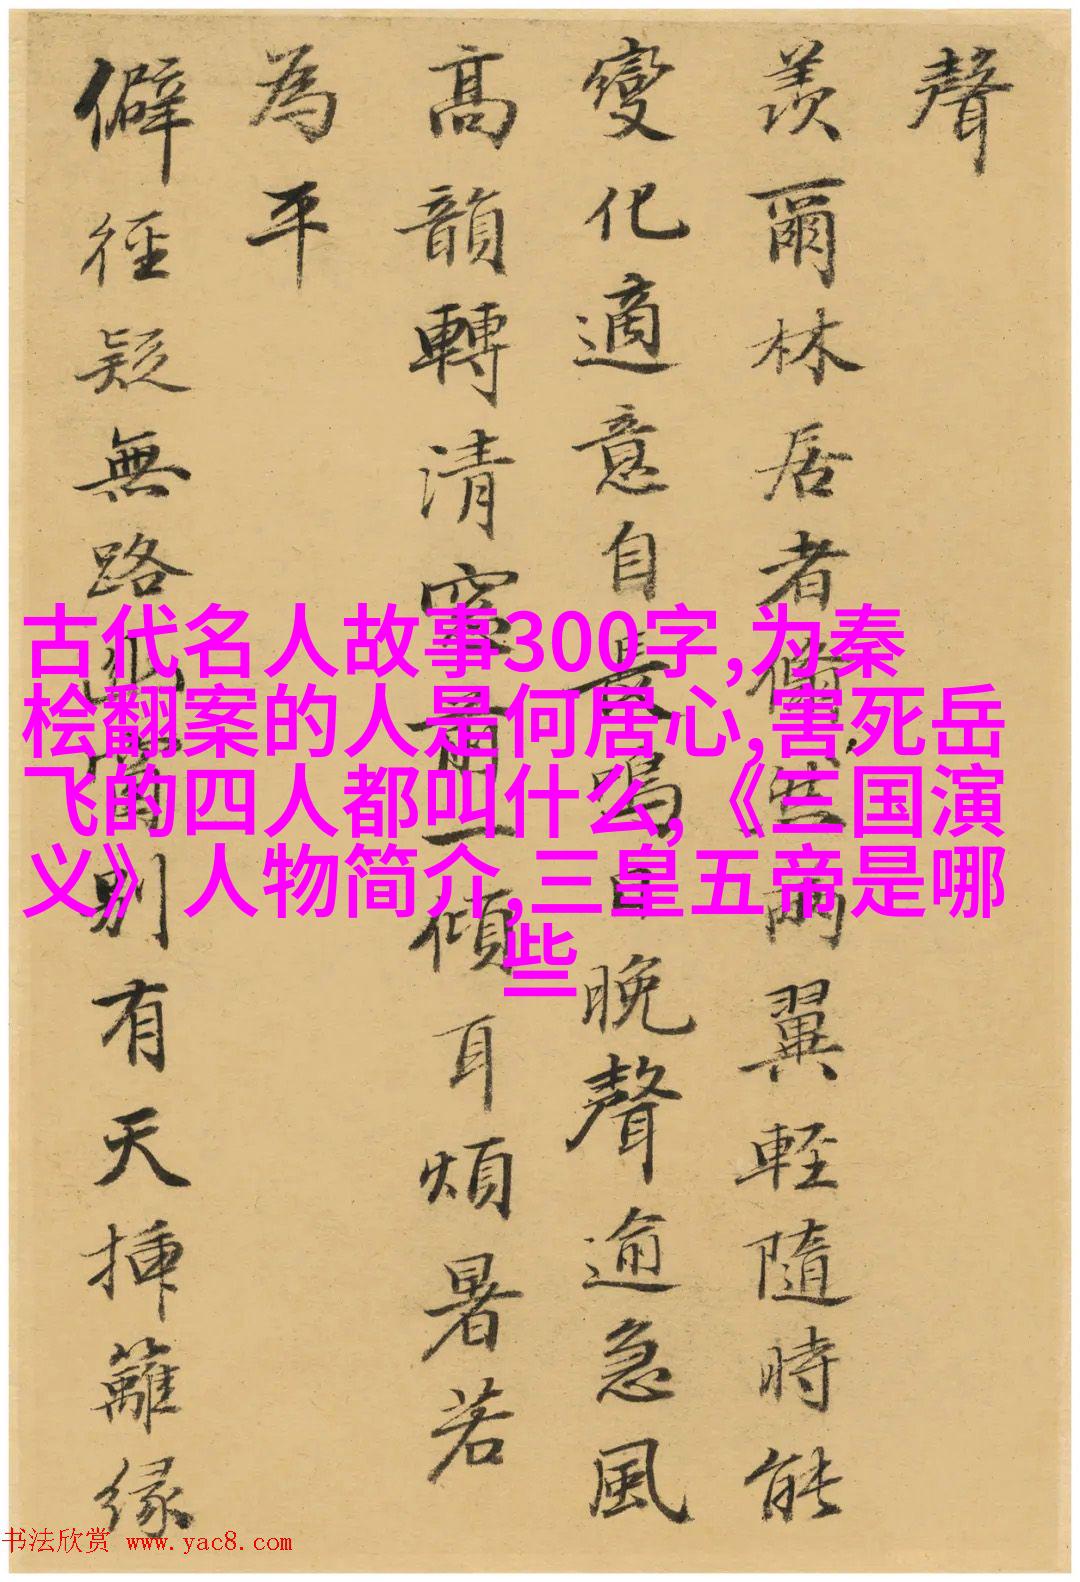 聲
羨爾林居者翛然兩翼輕隨時能
變化適意自長鳴日晚聲逾急風
高韻轉清窓前一傾耳煩暑若
為平
僻徑疑無路別有天揷籬緣
古代名人故事300字,为秦
桧翻案的人是何居心,害死岳
飞的四人都叫什么,《三国演
义》人物简介,三皇五帝是哪
些
书法欣赏 www.yac8.com